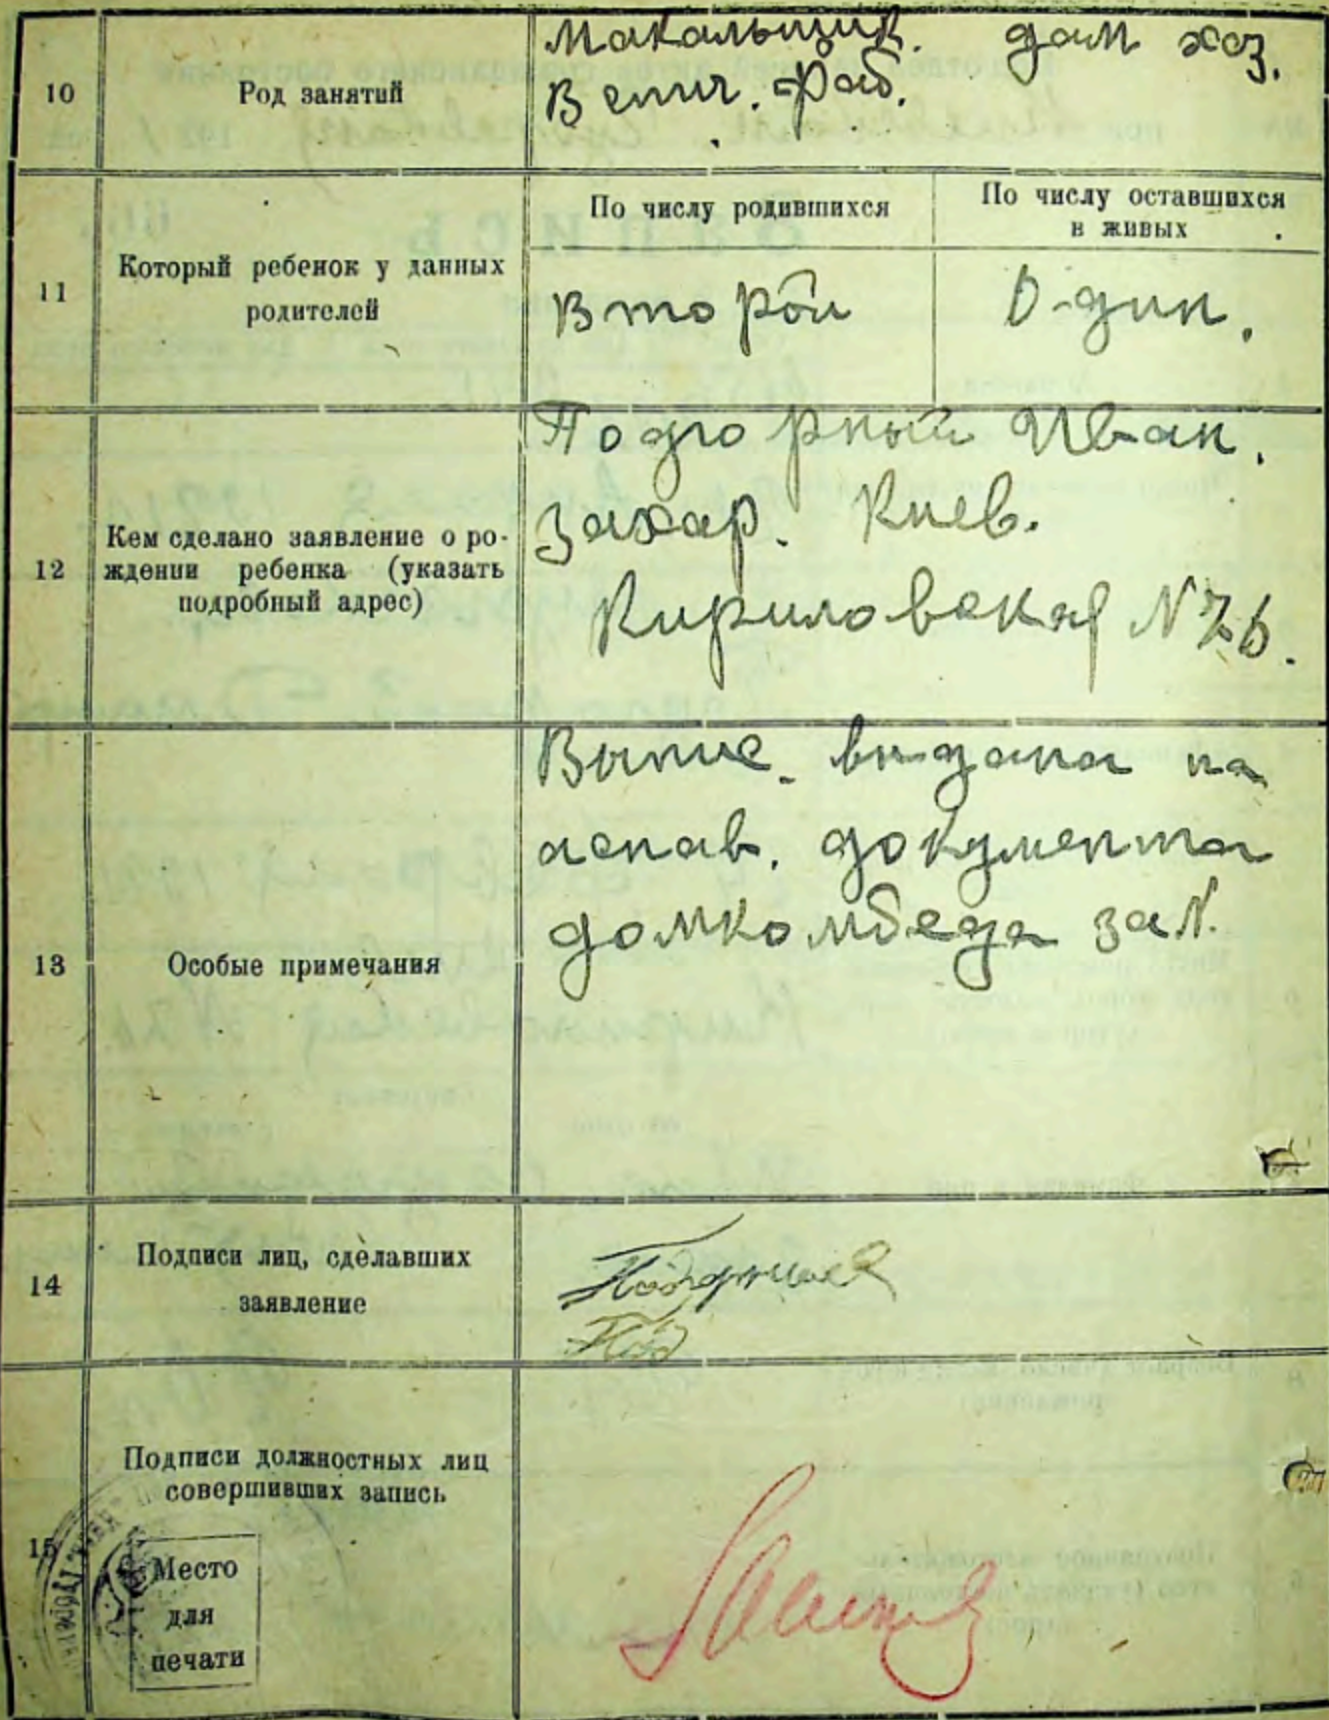 10
Род занятий
Макальщик. дом хоз.
В спич. фаб.
11
Который ребенок у данных
родителей
По числу родившихся
По числу оставшихся
в живых
Второй
Один.
12
Кем сделано заявление о ро-
ждении ребенка (указать
подробный адрес)
Подгорный Иван.
Захар. Киев.
Кириловская N 76.
13
Особые примечания
выдана на
аснав. документа
домкомбеда за N.
14
Подписи лиц, сделавших
заявление
15
Подписи должностных лиц
совершивших запись
Место
для
печати